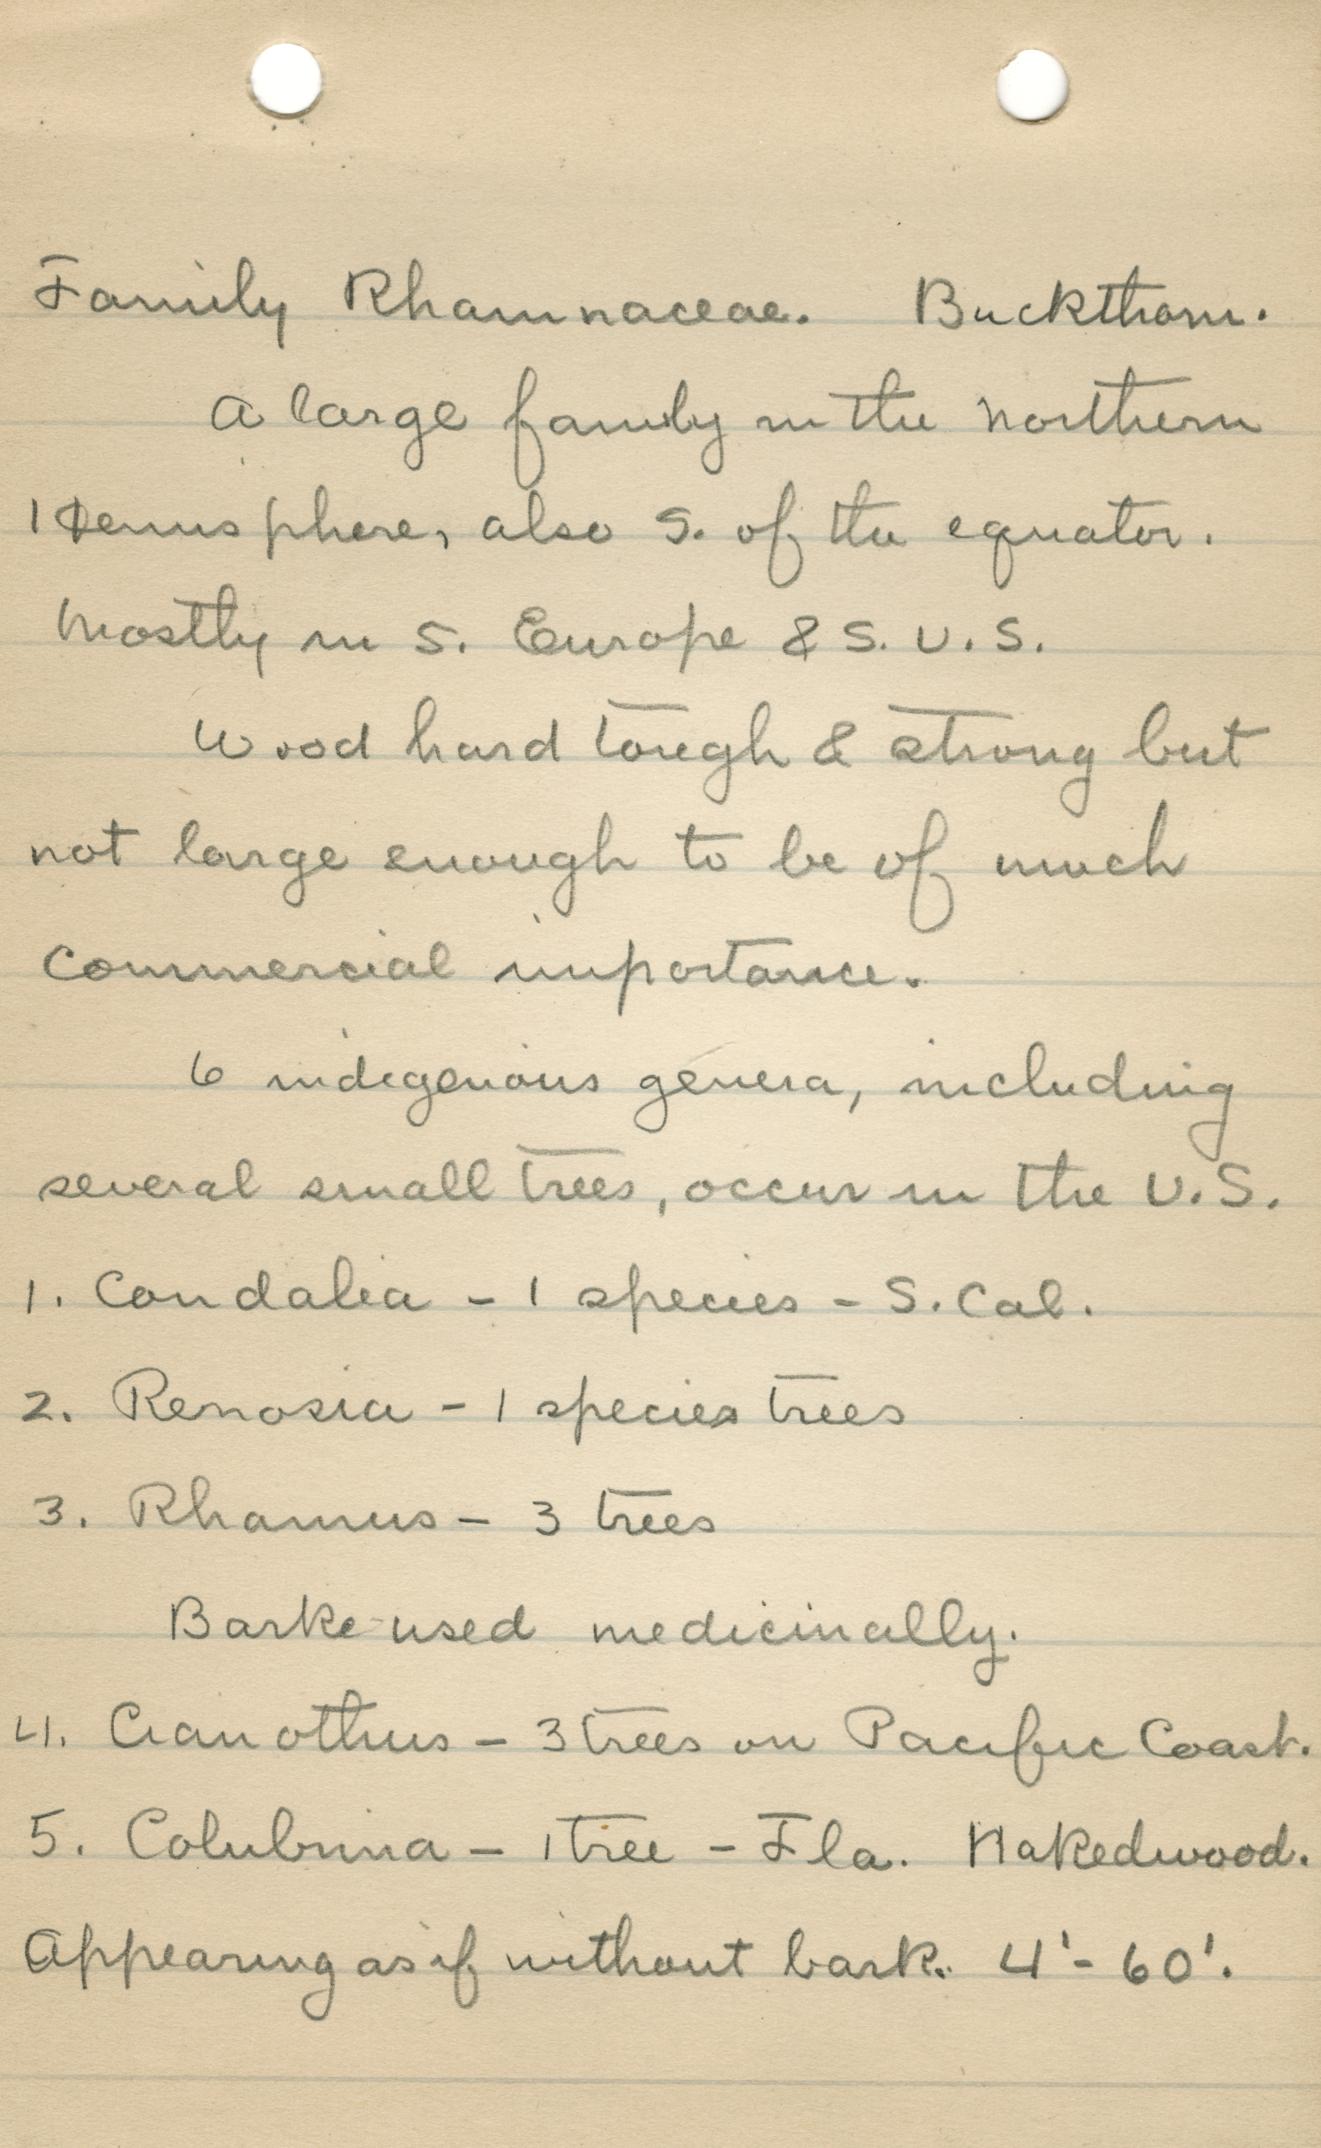 Family Rhamnaceae. Buckthorn.
A large family in the northern
Hemisphere, also S. of the equator.
Mostly in S. Europe & S. U.S.
Wood hard tough & strong but
not large enough to be of much
commercial importance.
6 indegenious genera, including
several small trees, occur in the U.S.
1. Condalia - 1 species - S. Cal.
2. Renosia - 1 species trees
3. Rhamus - 3 trees
Barke used medicinally.
4. Cianothus - 3 trees on Pacific Coast.
5. Colubrina - 1 tree - Fla. Nakedwood.
Appearing as if without bark. 4'- 60'.